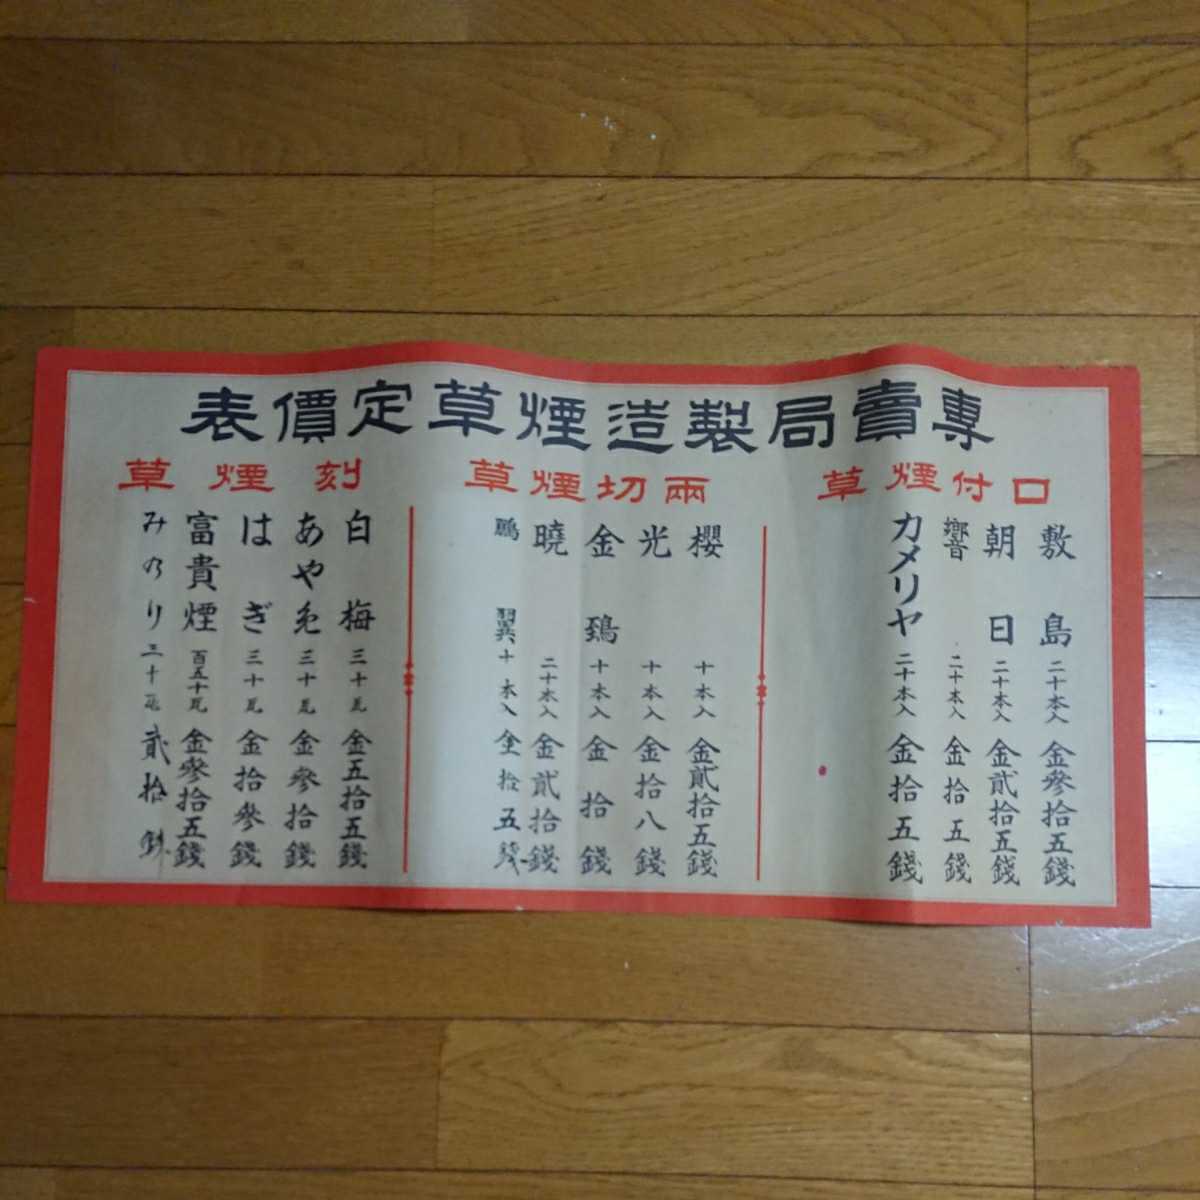 專賣局製造煙草定價表
口付煙草
敷島二十本入金參拾五錢
朝日二十本入金貳拾五錢
響二十本入金拾五錢
カメリヤ二十本入金拾五錢
兩切煙草
櫻十本入金貳拾五錢
光十本入金拾八錢
金鵄十本入金拾錢
曉二十本入金貳拾錢
鵬翼十本入金拾五錢
刻煙草
白梅三十瓦金五拾五錢
あやめ三十瓦金參拾錢
はぎ三十瓦金拾參錢
富貴煙百五十瓦金參拾五錢
みのり三十瓦貳拾錢